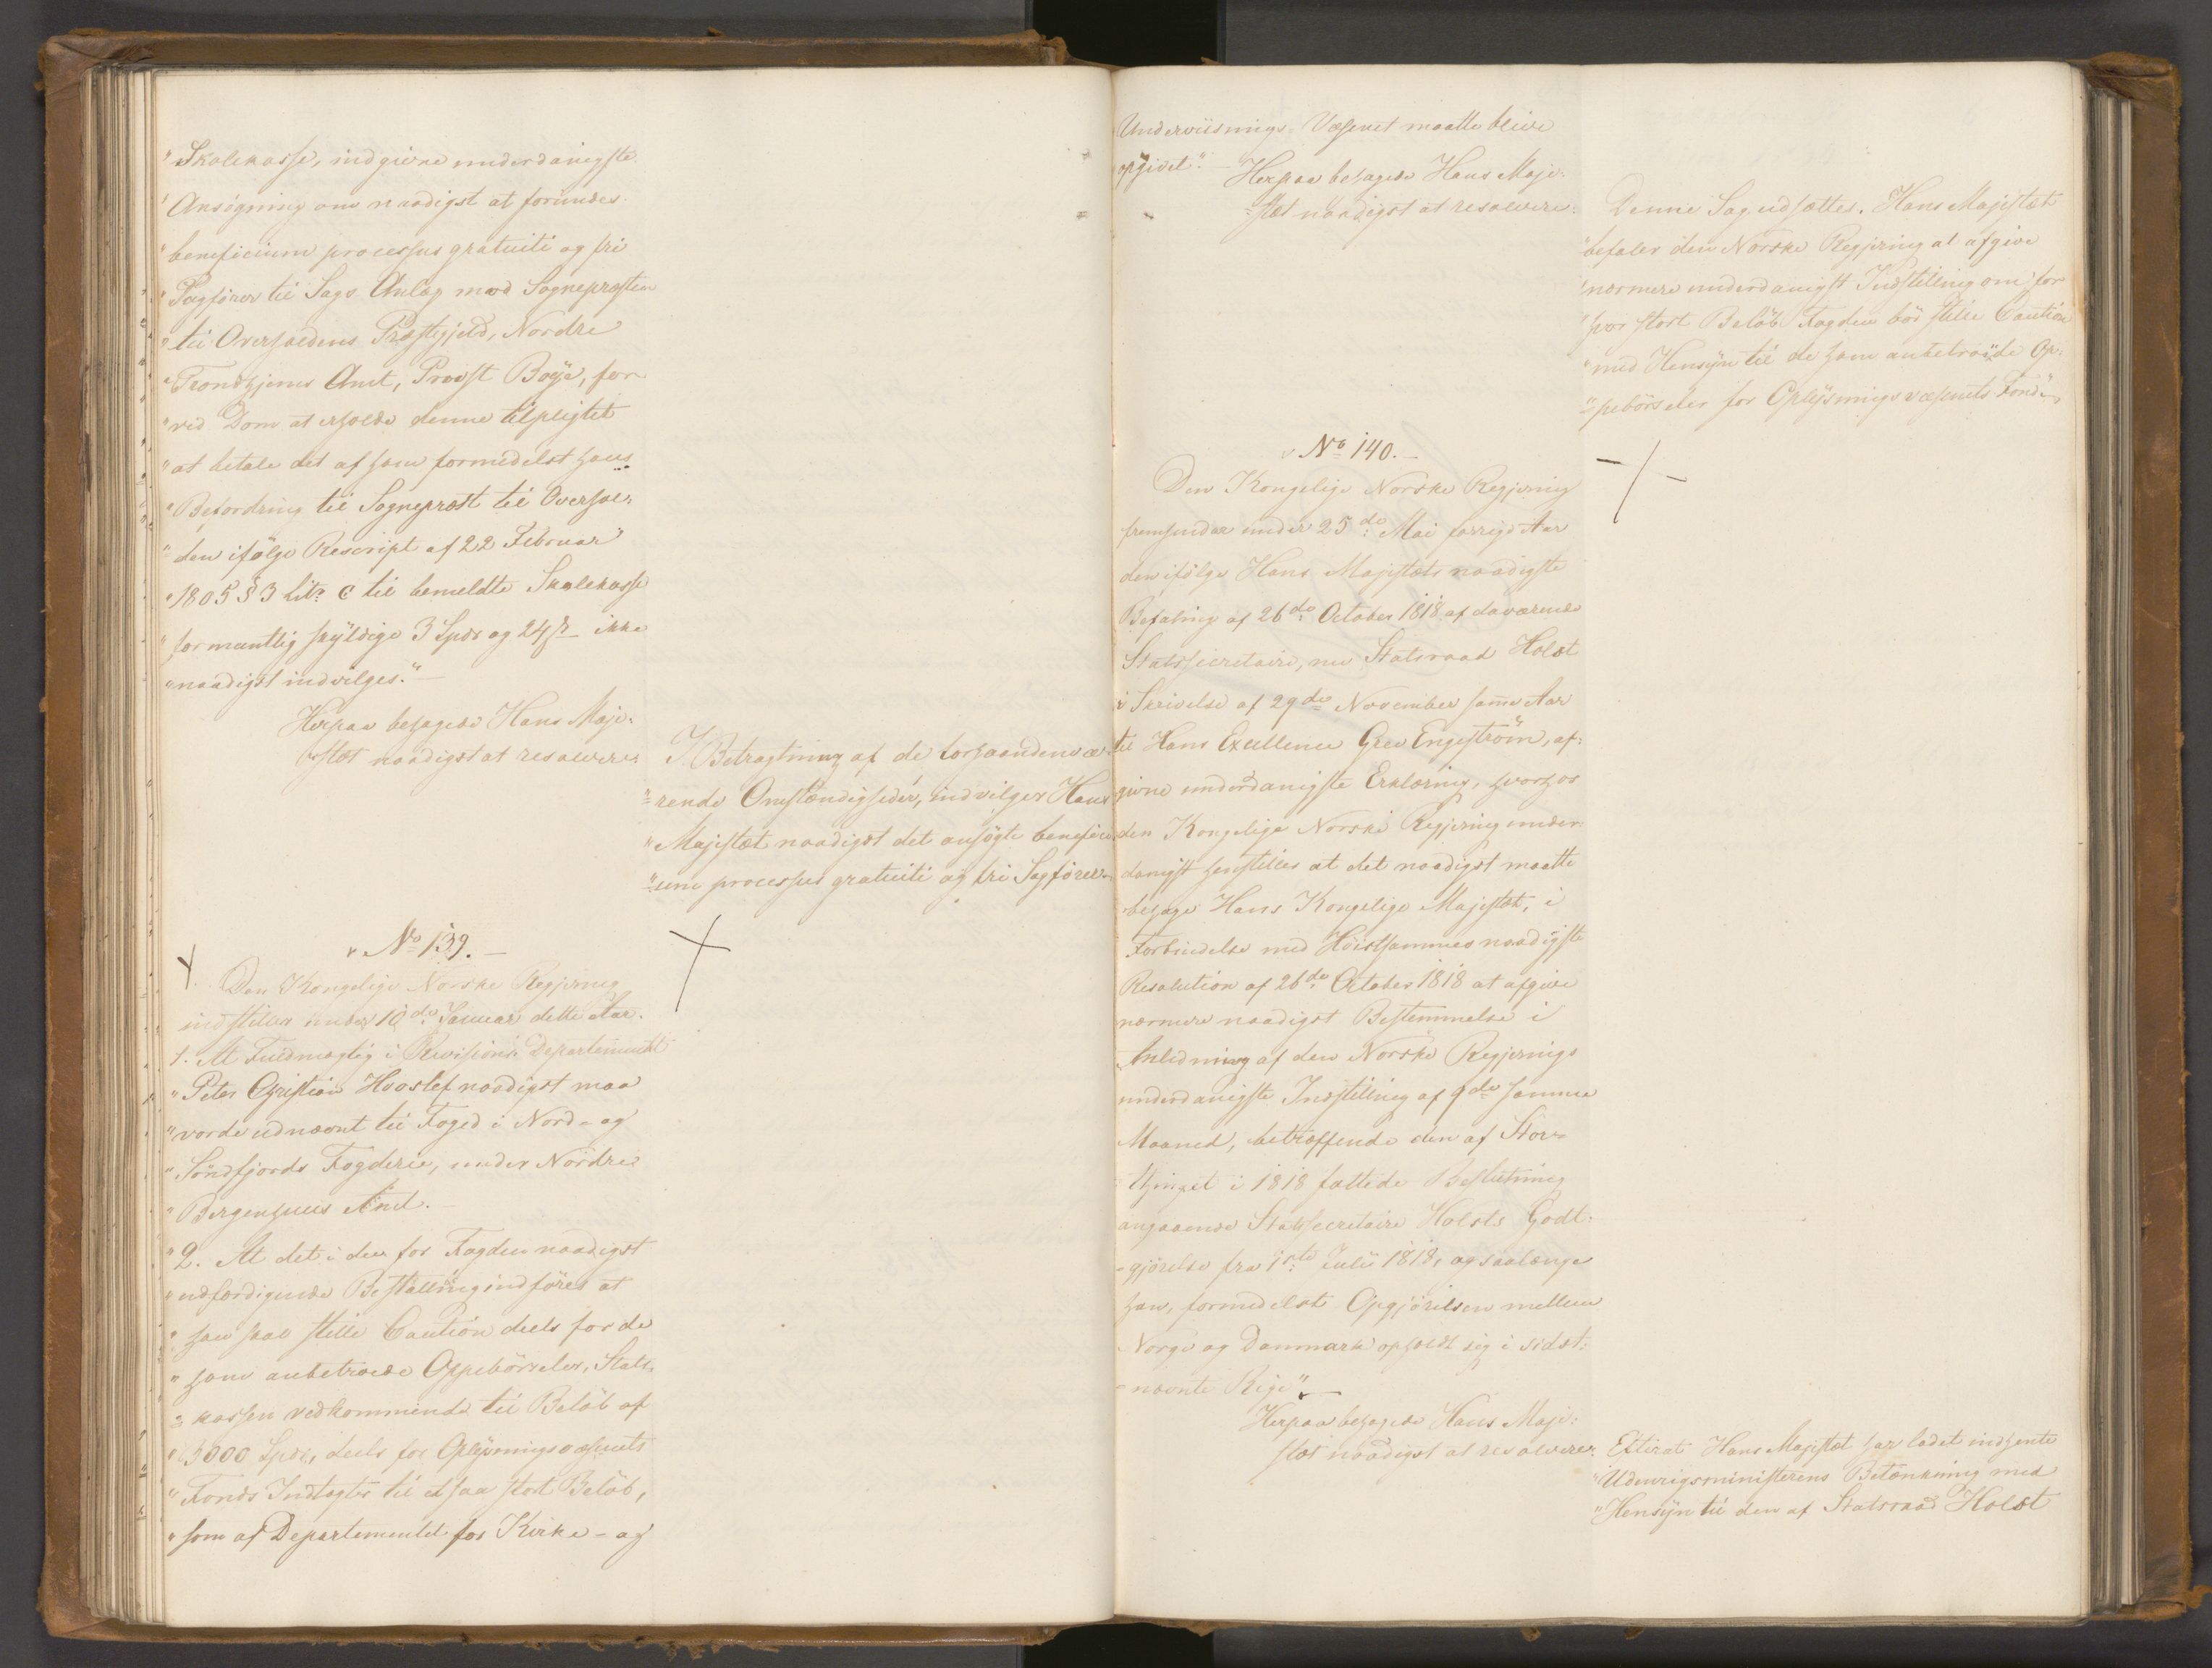 "Skolekasse, indgivne underdanigste
"Ansøgning om naadigst at forundes
"beneficium processus gratuiti og fri
"Sagfører til Sags Anlæg mod Sognepræsten
"til Overhaldens Præstegjeld, Nordre
"Trondhjems Amt, Provst Boye, for
"ved Dom at erholde denne tilpligtet
"at betale det af ham formedelst hans
"Befordring til Sognepræst til Overhal-
"den ifølge Rescript af 22 Februar
"1805 § 3 Litr. c til bemeldte Skolekasse
"formeentlig skyldige 3 Spdr og 24 s ikke
"naadigst indvilges."
Herpaa behagede Hans Maje-
stæt naadigst at resolvere:
I Betragtning af de forhaandenvæ-
"rende Omstændigheder, indvilger Hans
"Majestæt naadigst det ansøgte benefici-
"um processus gratuiti og fri Sagfører.
No 139.
Den Kongelige Norske Regjering
indstiller under 10de Januar dette Aar.
1. At Fuldmægtig i Revisions Departementet
"Peter Christian Hvoslef naadigst maa
"vorde udnævnt til Foged i Nord- og
"Søndfjords Fogderie, under Nordre
"Bergenhuus Amt.
"2. At det i den for Fogden naadigst
"udfærdigende Bestalling indføres at
"han skal stille Caution deels for de
"ham anbetroede Oppebørseler, Stats-
"kassen vedkommende til Beløb af
"5000 Spdr, deels for Oplysningsvæsenets
"Fonds Indtægter til et saa stort Beløb,
"som af Departementet for Kirke- og
Underviisnings-Væsenet maatte blive
opgivet."
Herpaa behagede Hans Maje-
stæt naadigst at resolvere:
Denne Sag udsættes. Hans Majestæt
"befaler den Norske Regjering at afgive
"nærmere underdanigst Indstilling om for
"hvor stort Beløb Fogden bør stille Caution
"med Hensyn til de ham anbetroede Op-
"pebørseler for Oplysningsvæsenets Fond."
No 140.
Den Kongelige Norske Regjering
fremsender under 25de Mai forrige Aar
den ifølge Hans Majestæts naadigste
Befaling af 26de October 1818 af daværende
Statssecretaire, nu Statsraad Holst
i Skrivelse af 29de November samme Aar
til Hans Excellence Grev Engeström, af-
givne underdanigste Erklæring, hvorhos
den Kongelige Norske Regjering under-
danigst henstiller at det naadigst maatte
behage Hans Kongelige Majestæt, i
Forbindelse med Høistsammes naadigste
Resolution af 26de October 1818 at afgive
nærmere naadigst Bestemmelse i
Anledning af den Norske Regjerings
underdanigste Indstilling af 9de samme
Maaned, betræffende den af Stor-
thinget i 1818 fattede Beslutning
angaaende Statssecretaire Holsts Godt-
gjørelse fra 1ste Julii 1818, og saalænge
han, formedelst Opgjørelsen mellem
Norge og Danmark opholdt sig i sidst-
nævnte Rige".
Herpaa behagede Hans Maje-
stæt naadigst at resolvere:
Efterat Hans Majestæt har ladet indhente
"Udenrigsministerens Betænkning med
"Hensyn til den af Statsraad Holst